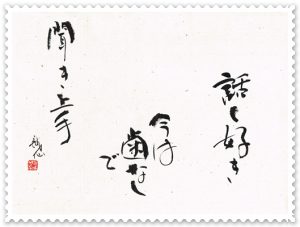 話し好き
今は
歯なし
で
聞き上手